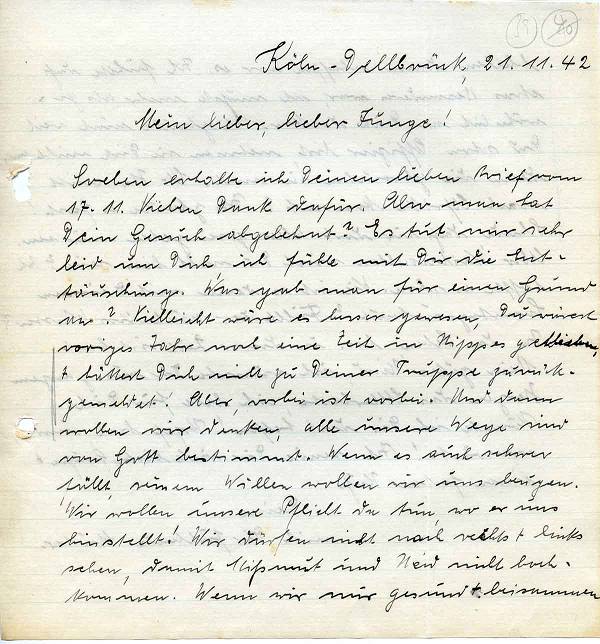 39 40
Köln-Dellbrück, 21.11.42
Mein lieber, lieber Junge!
Soeben erhalte ich Deinen lieben Brief vom
17.11. Vielen Dank dafür. Also man hat
Dein Gesuch abgelehnt? Es tut mir sehr
leid um Dich ich fühle mit Dir die Ent-
täuschung. Was gab man für einen Grund
an? Vielleicht wäre es besser gewesen, Du wärst
voriges Jahr noch eine Zeit in Nippes geblieben,
+ hättest Dich nicht zu Deiner Truppe zurück-
gemeldet! Aber, vorbei ist vorbei. Und dann
wollen wir denken, alle unsere Wege sind
von Gott bestimmt. Wenn es auch schwer
fällt, seinem Willen wollen wir uns beugen.
Wir wollen unsere Pflicht da tun, wo er uns
hinstellt! Wir dürfen nicht nach rechts + links
sehen, damit Mißmut und Neid nicht hoch-
kommen. Wenn wir nur gesund + beisammen